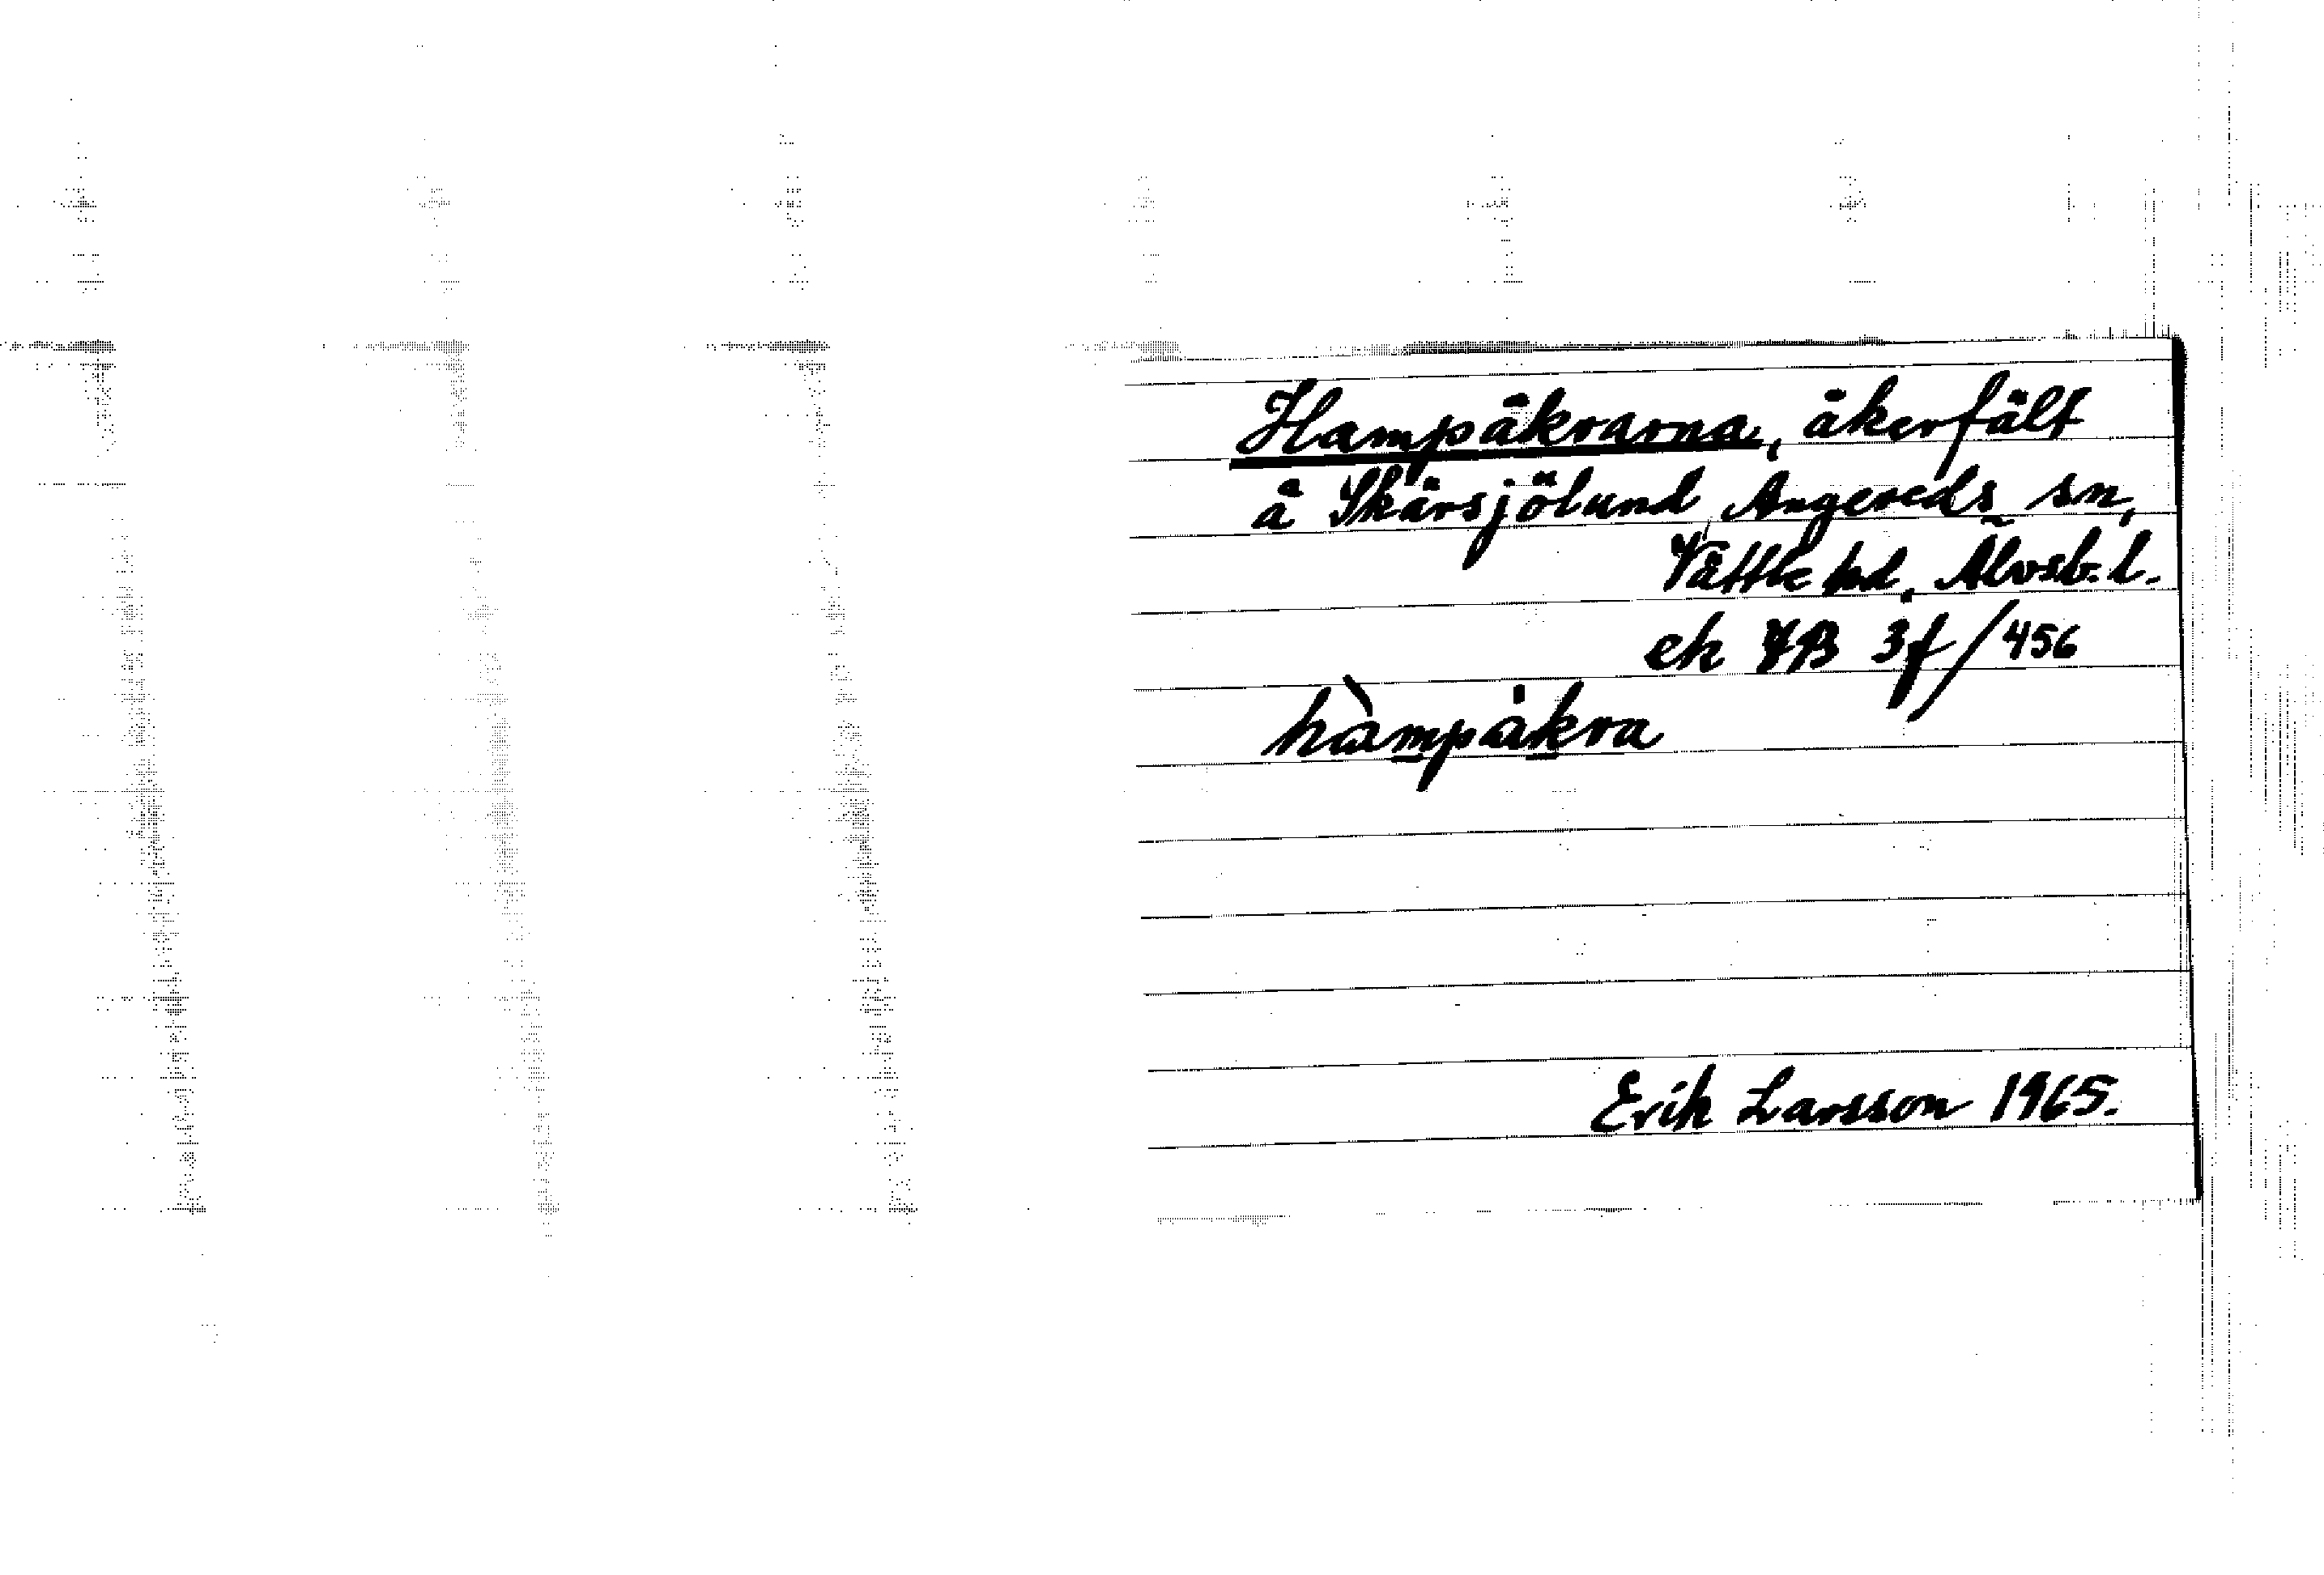 Hampåkrarna, åkerfält
å Skårsjölund, Angereds sn,
Vättle hd, Älvsb. l.
ek 7B 3f/456
hàmpåkra
Erik Larsson 1965.